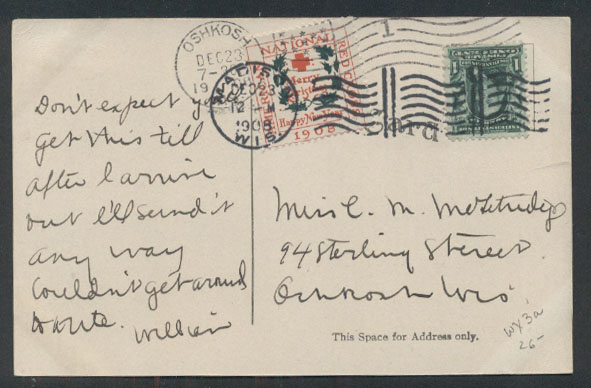 OSHKOSH
DEC 23
7-
19
MADISON
DEC 23
12 - M
1908
WIS
NATIONAL
RED CROSS
Merry
Christmas
Happy New Year
1908
1
Card
Don't expect you'll
get this till
after I arrive
but I'll send it
any way
Couldn't get around
to write.
William
Miss C. M.
94 Sterling Street.
Oshkosh Wis
This Space for Address only.
WX3a
26-